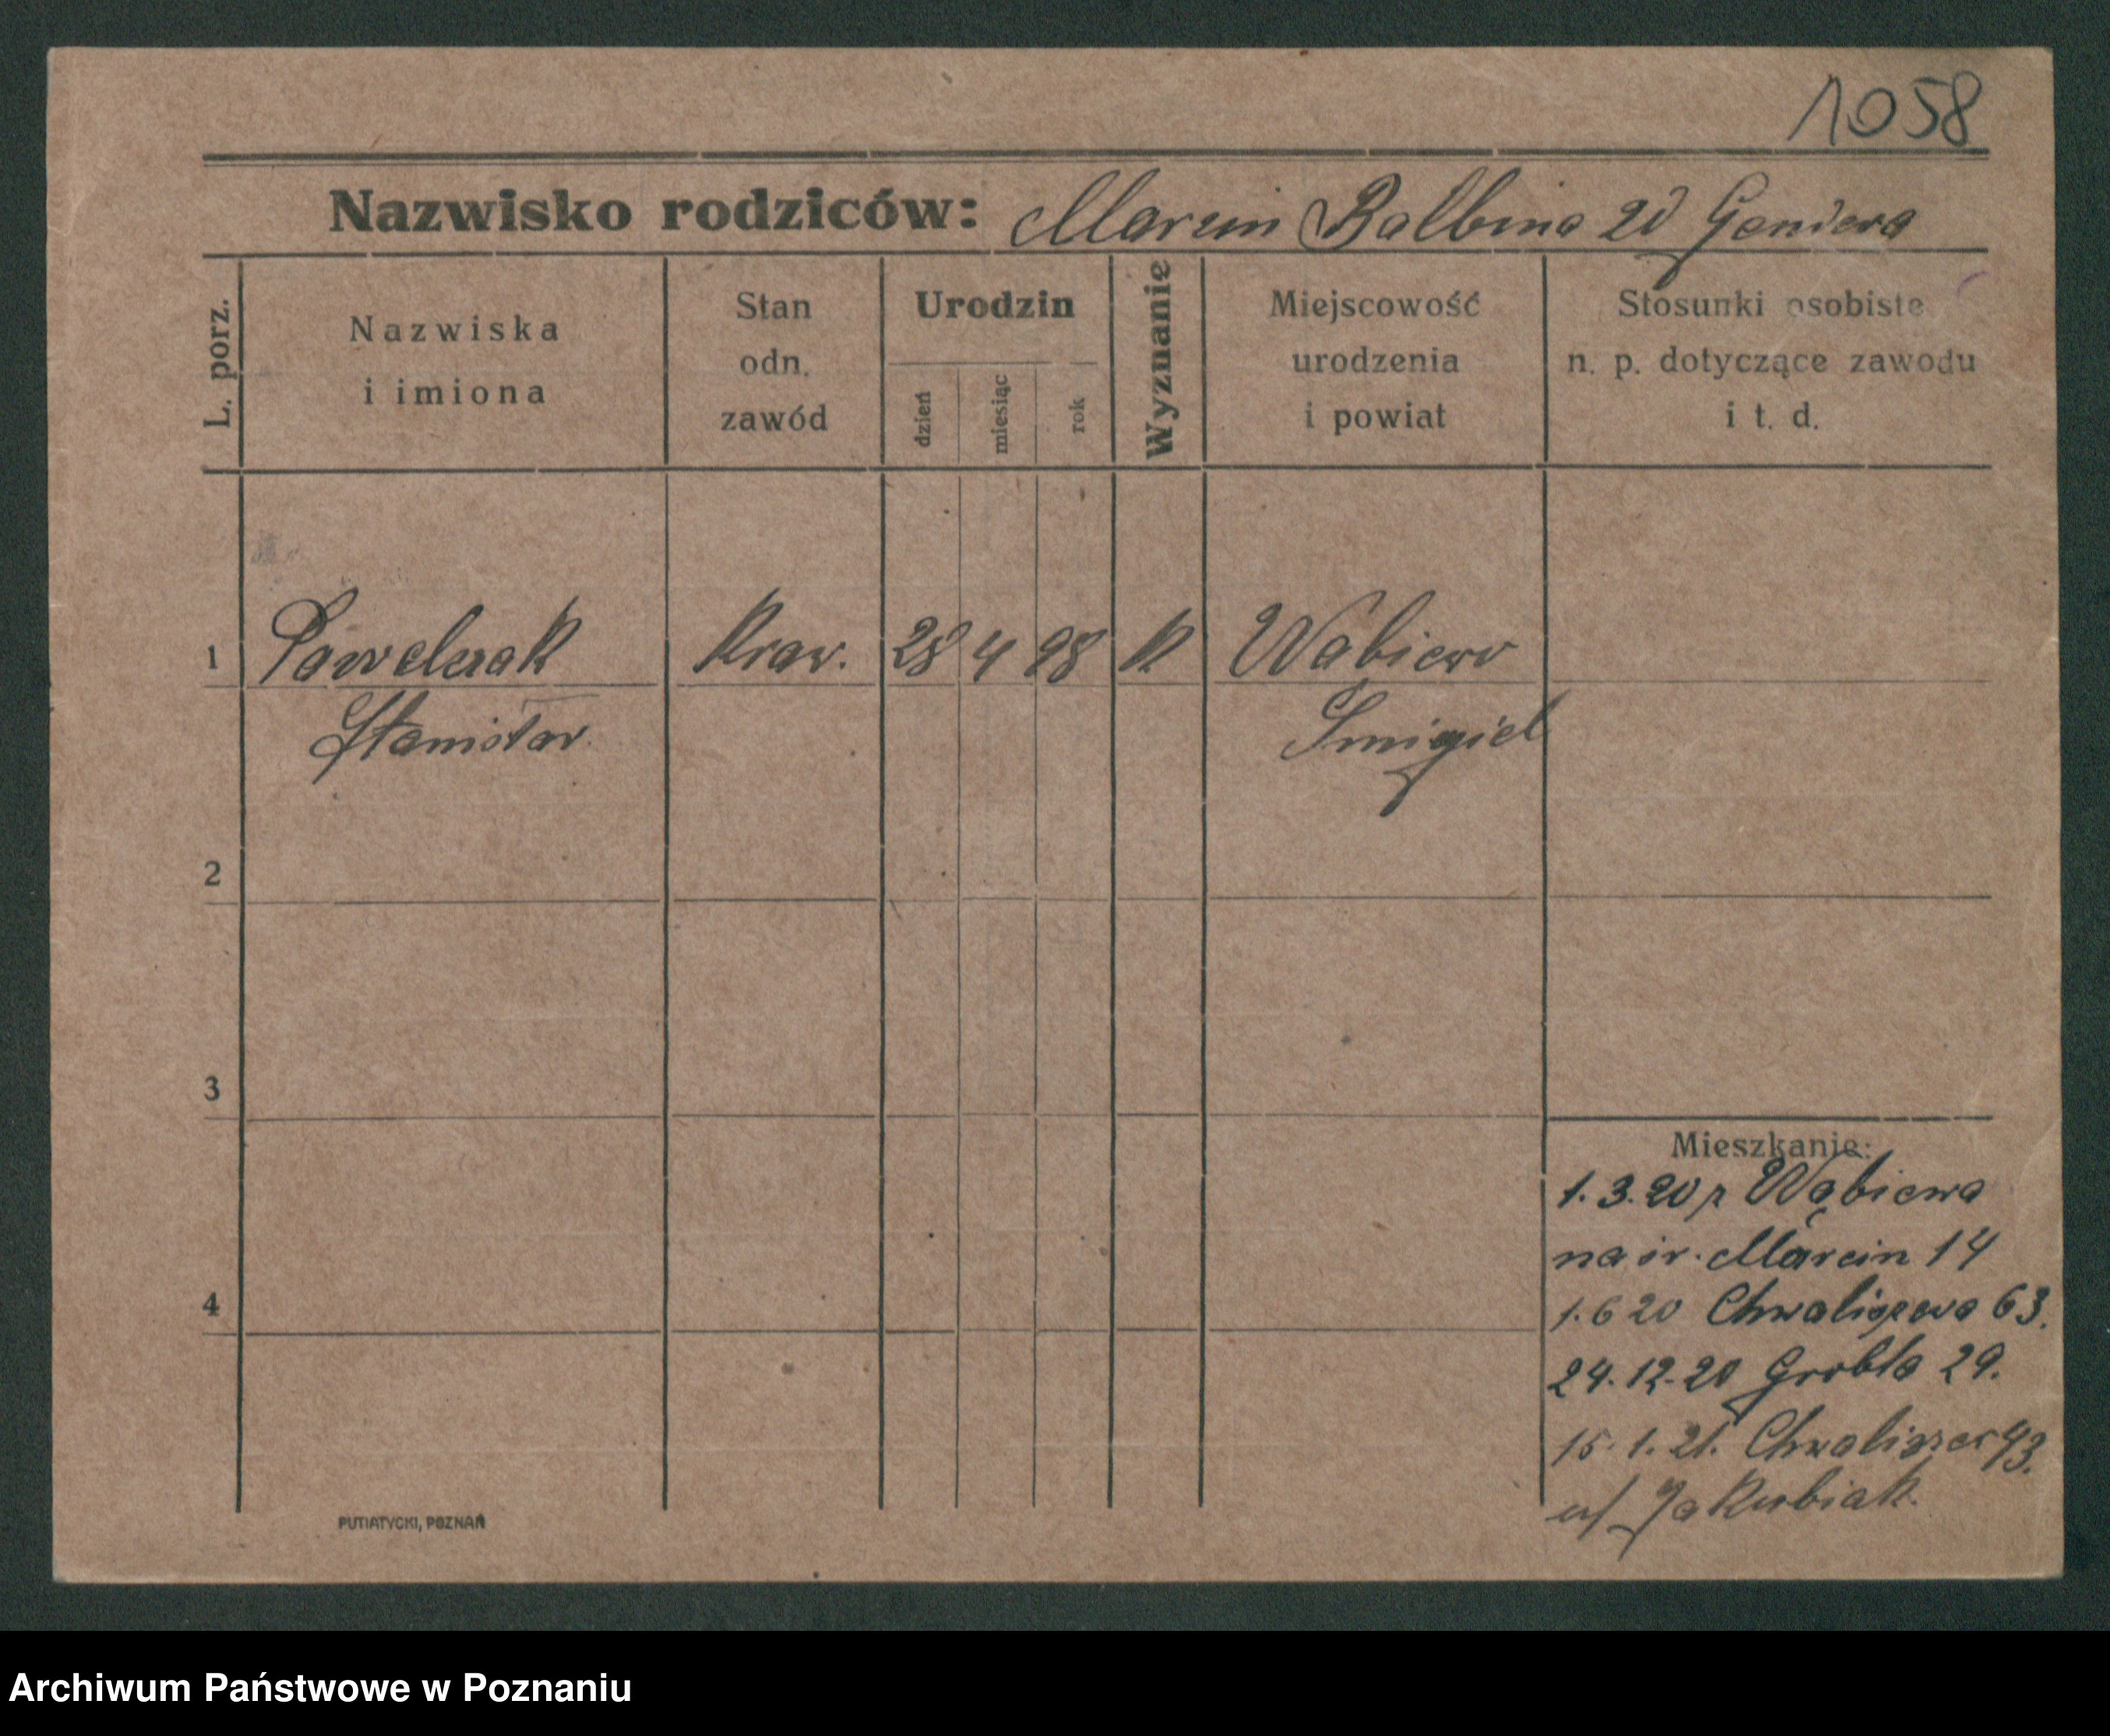 1058
Nazwisko rodziców: Marcin Balbina zd Gendera
L. porz.
Nazwiska
i imiona
Stan
odn.
zawód
Urodzin
dzień
miesiąc
rok
Wyznanie
Miejscowość
urodzenia
i powiat
Stosunki osobiste
n. p. dotyczące zawodu
i t. d.
1 Pawelczak Kraw. 28 4 98 K Wąbiewo
Stanisław Śmigiel
2
3
4
Mieszkanie:
1.3.20 z Wąbiewa
na św. Marcin 14
1.6 20 Chwaliszewo 63.
24.12.20 Grobla 29.
15.1.21. Chwaliszew 43.
u/ Jakubiak.
PUTIATYCKI, POZNAŃ
Archiwum Państwowe w Poznaniu